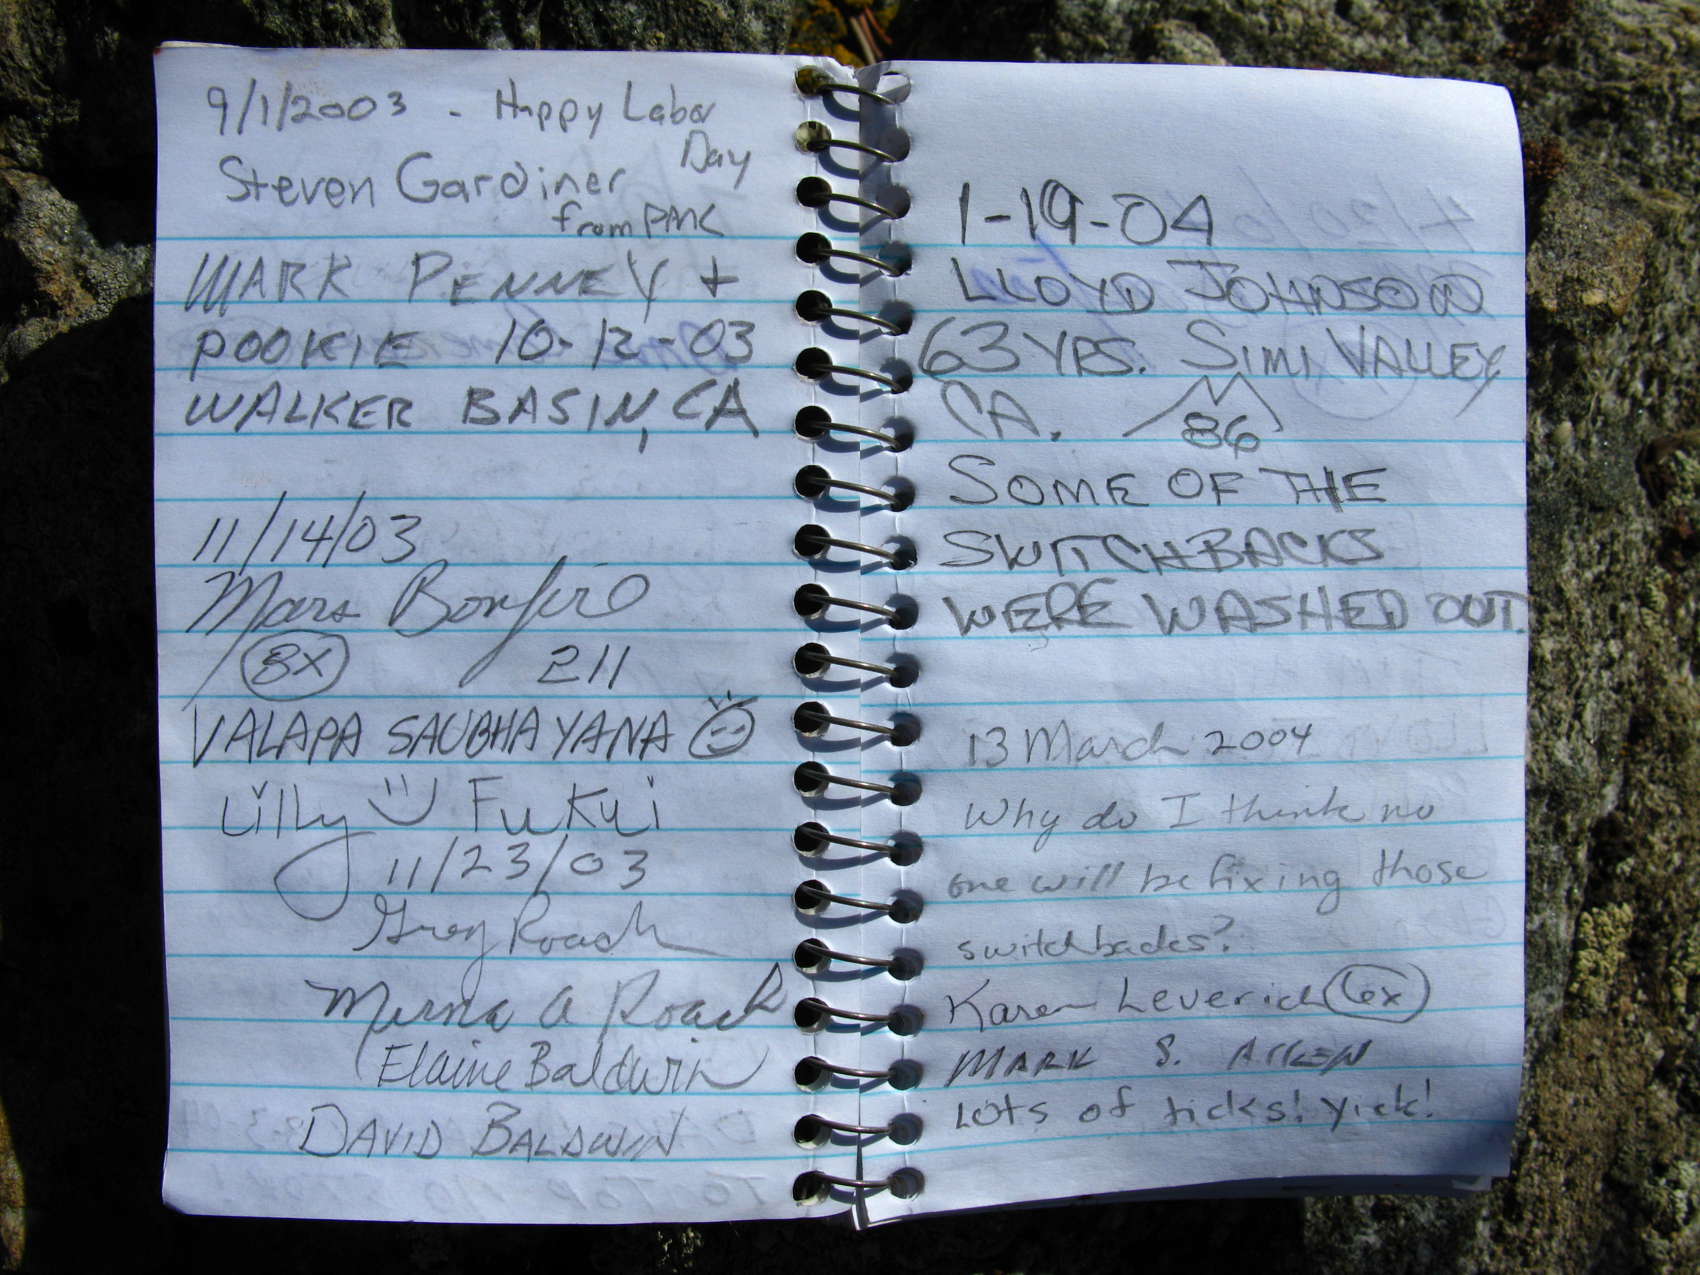 9/1/2003 - Happy Labor
Day
Steven Gardiner
from PMC
MARK PENNEY +
POOKIE 10-12-03
WALKER BASIN, CA
11/14/03
Mars Bonfire
8x 211
VALAPA SAUBHAYANA
Lilly Fukui
11/23/03
Greg Roach
Mirna A Roach
Elaine Baldwin
DAVID BALDWIN
1-19-04
LLOYD JOHNSON
63 YRS. SIMI VALLEY
CA. 86
SOME OF THE
SWITCHBACKS
WERE WASHED OUT.
13 March 2004
Why do I think no
one will be fixing those
switchbacks?
Karen Leverich 6x
MARK S.
LOTS OF ticks! Yick!